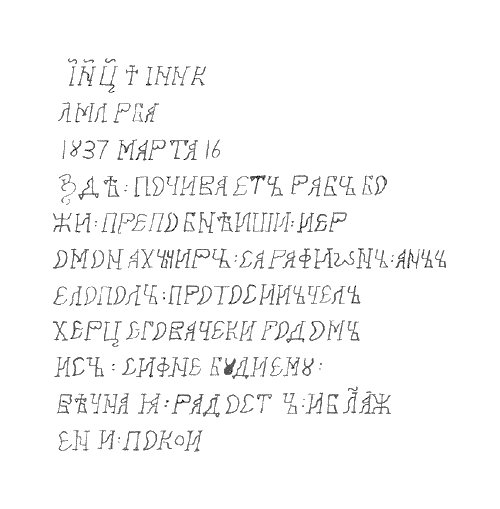 І҃Н҃Ц҃ ☦ ІННК
ЛМЛ РБА
1837 МАРТА 16
ЗДѢ:ПОЧИВАЕТЪ РАБЪ БО
ЖИ:ПРЕПОБНѢИШИ:ИЕР
ОМОНАХЪ ИИРЪ:САРАФИѠНЪ:АНЪЪ
ЕЛОПОЛЪ:ПРОТОСИНЪЧЕЛЪ
ХЕРЦЕГОВАЧЕКИ РОДОМЪ
ИСЪ:СИФНЕ БꙊДИЕМꙊ:
ВѢЧНАЯ:РАДОСТЪ:ИБЛ҃А҃Ж
ЕНИ:ПОКОИ